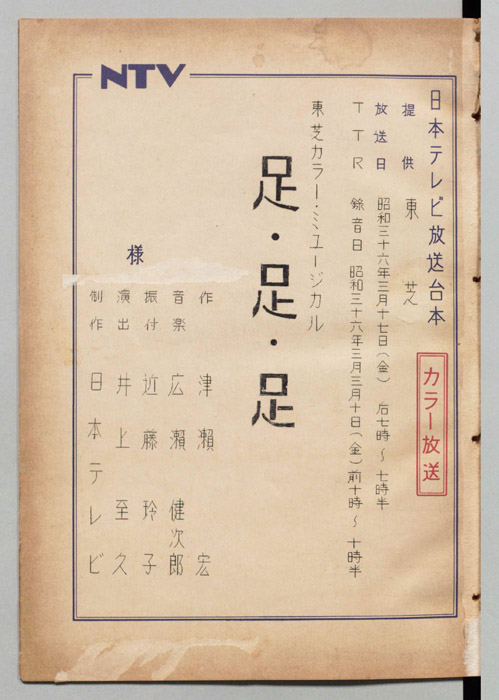 NTV
日本テレビ放送台本
カラー放送
提供 東芝
放送日 昭和三十六年三月十七日(金) 后七時~七時半
TTR 録音日 昭和三十六年三月三月十日(金)前十時~十時半
東芝カラー・ミュージカル
足・足・足
作 津瀬宏
音楽 広瀬健次郎
振付 近藤玲子
演出 井上至久
制作 日本テレビ
様